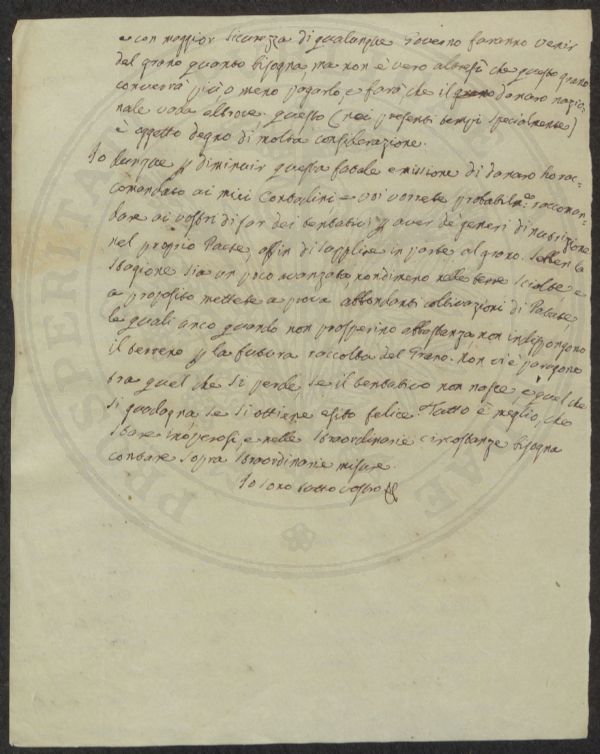 e con maggior sicurezza di qualunque Governo faranno venir
del grano quando bisogna, ma non è vero altresì che questo grano
converrà più o meno pagarlo, e farà, che il danaro nazio-
nale vada altrove. questo (nei presenti tempi specialmente)
è oggetto degno di molta considerazione.
Io dunque p diminuir questa fatale emissione di danaro ho rac-
comandato ai miei e voi vorrete probabilm.e raccoman-
dare ai vostri di far dei tentativi p aver de' generi di nutrizione
nel proprio Paese, affin di supplire in parte al grano. Sebben la
stagione sia un poco avanzata, nondimeno nelle terre sciolte, e
a proposito mettete a prova abbondanti coltivazioni di Patate,
le quali anco quando non prosperino abbastanza non indispongono
il terreno p la futura raccolta del Grano. Non vi è paragone
tra quel che si perde, se il tentativo non nasce e quel che
si guadagna se si ottiene esito felice. Tutto è meglio, che
stare inoperosi, e nelle straordinarie circostanze bisogna
contare sopra straordinarie misure.
Io sono tutto vostro
PROSPERITATI